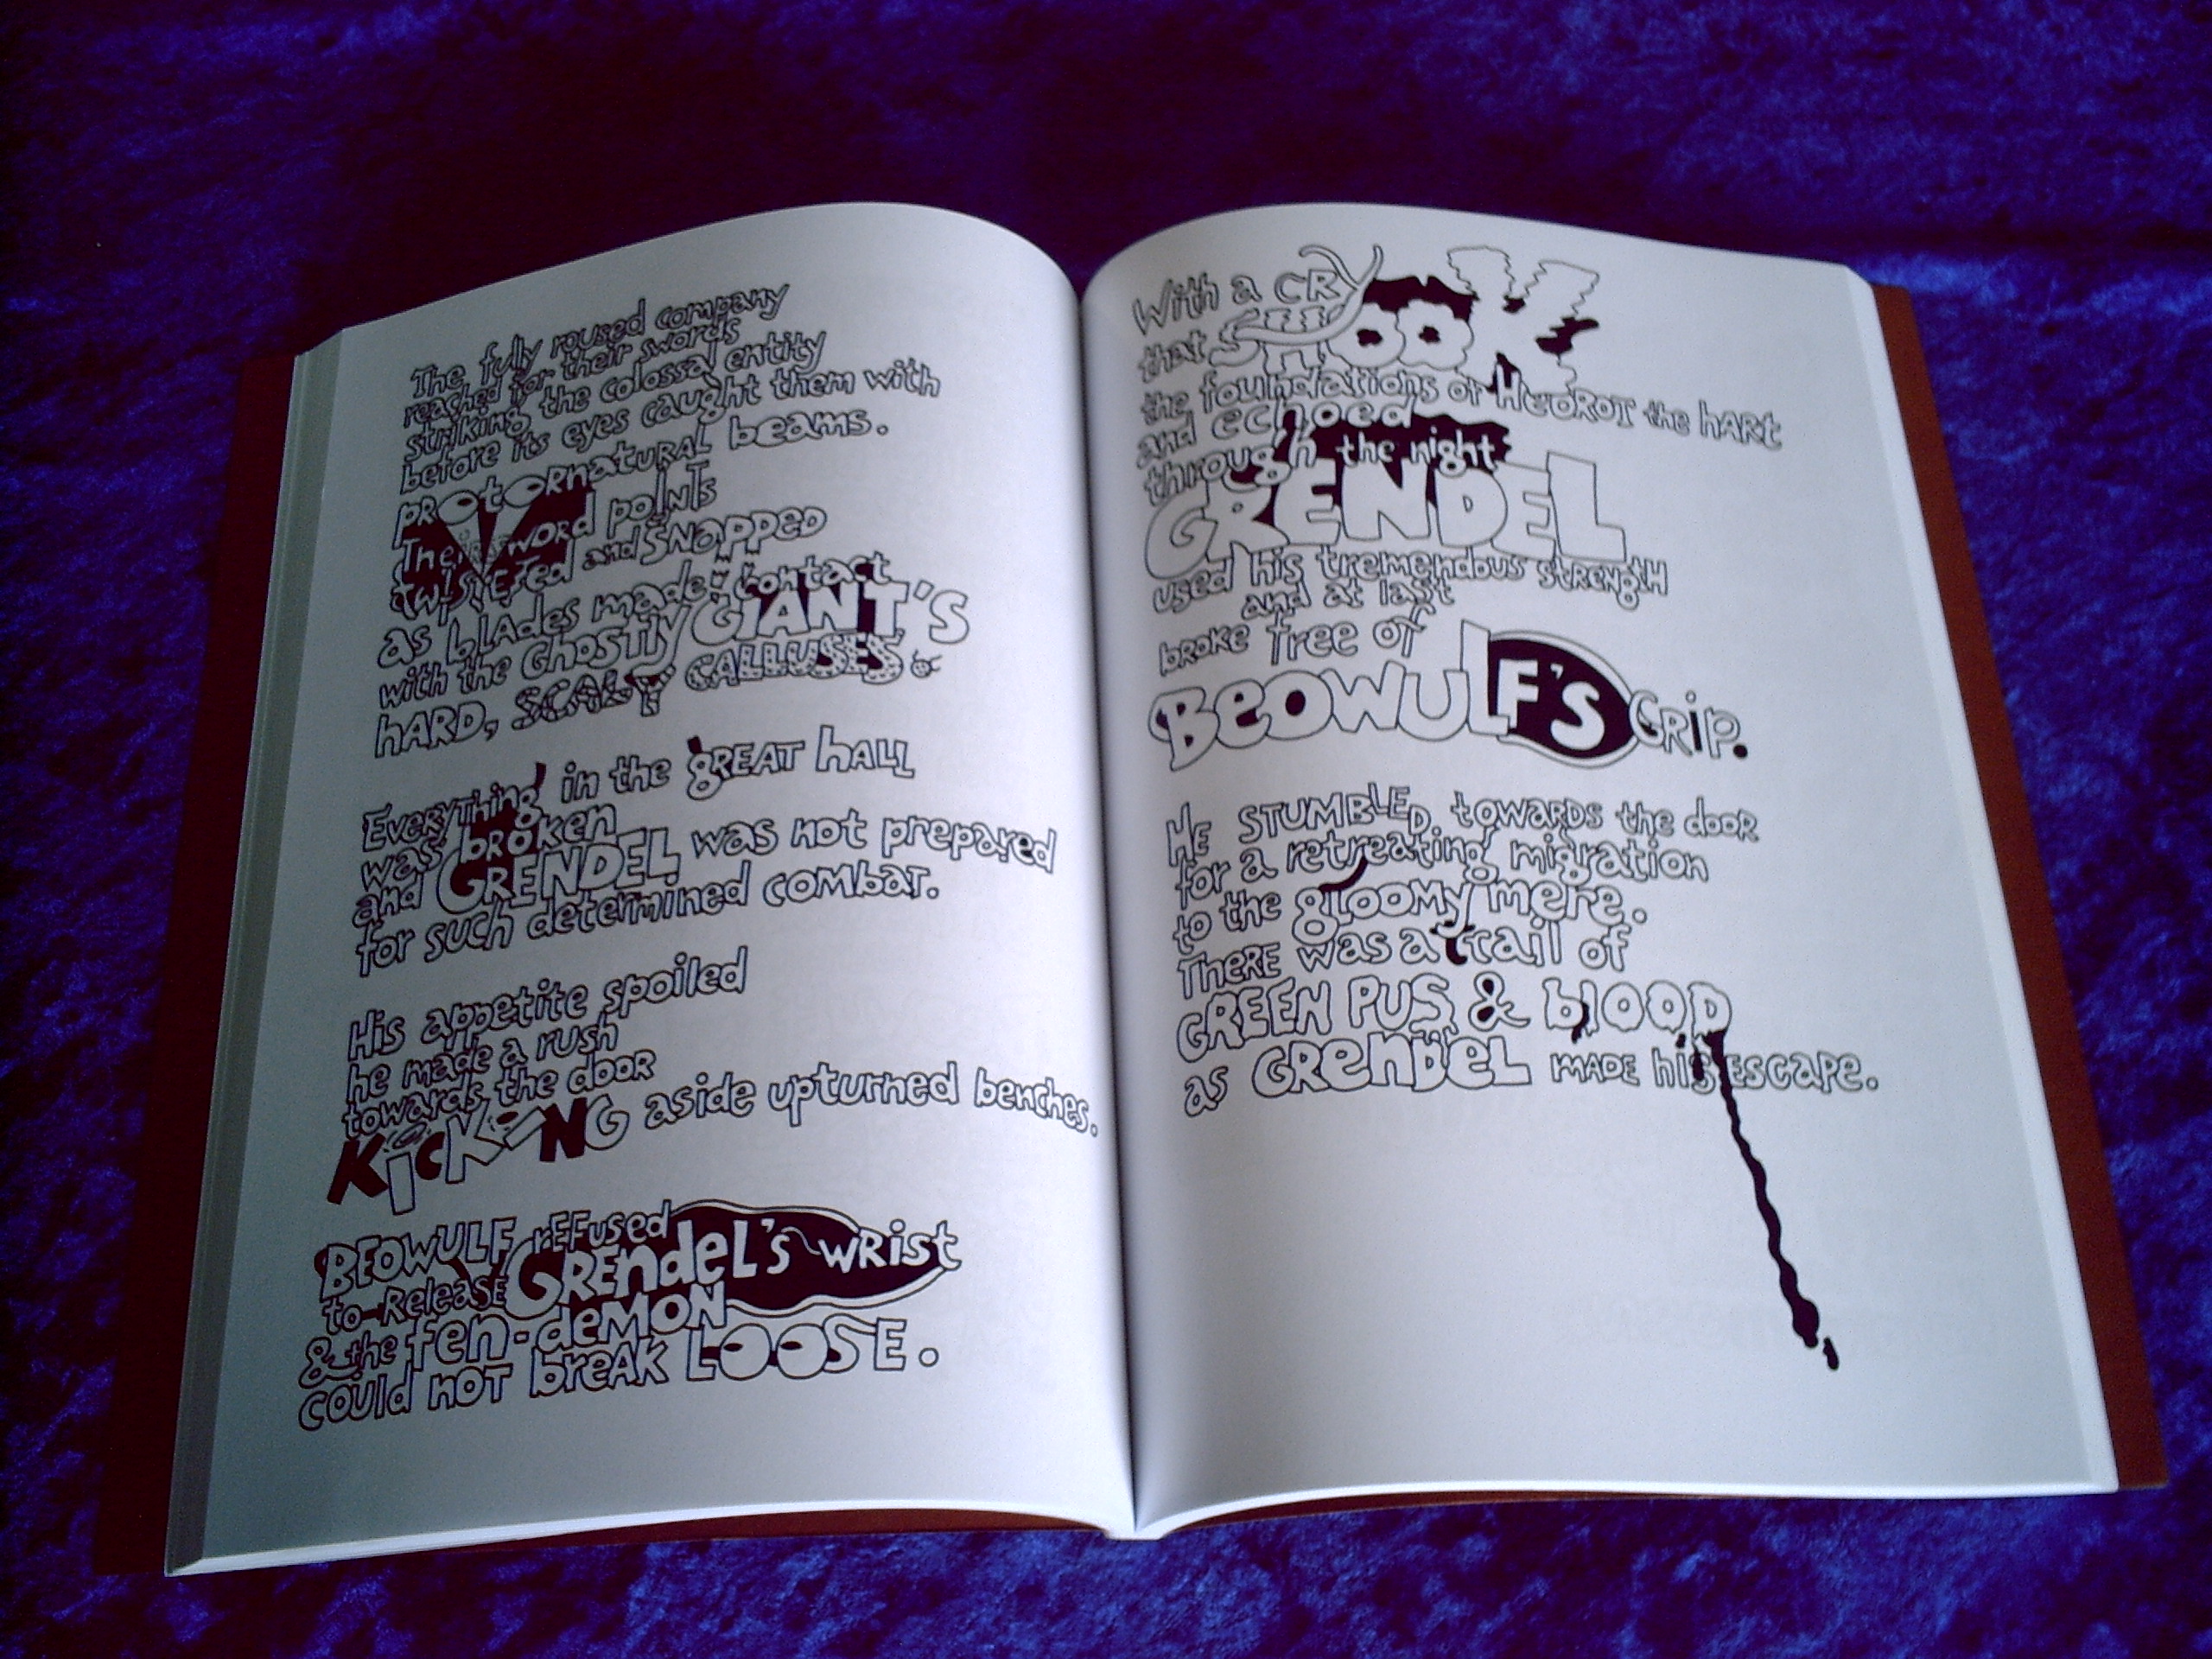 The fully roused company
reached for their swords
striking the colossal entity
before its eyes caught them with
protornatural beams.
Their sword points
twisted and snapped
as blades made contact
with the Ghostly GIANT'S
hARD, SCALY CALLUSES
Everything in the gREAT hALL
was broken
and GRENDEL was not prepared
for such determined combat.
His appetite spoiled
he made a rush
towards the dooR
KicKiNG aside upturned benches.
BEOWULF rEFused
to Release GRendeL's wRist
& the fen-deMON
could NOT breAK LOOSE.
With a CRY
that SHOOK
the foundations of HEOROT the hARt
and echoed
through the night
GRENDEL
used his tremendous strength
and at last
broke free of
BEOWULF'S GRip.
HE STUMBLED towards the dooR
for a retreating migration
to the gloomy mere.
There was a trail of
GREEN PUS & blOOD
as GRENDEL MADE his escape.